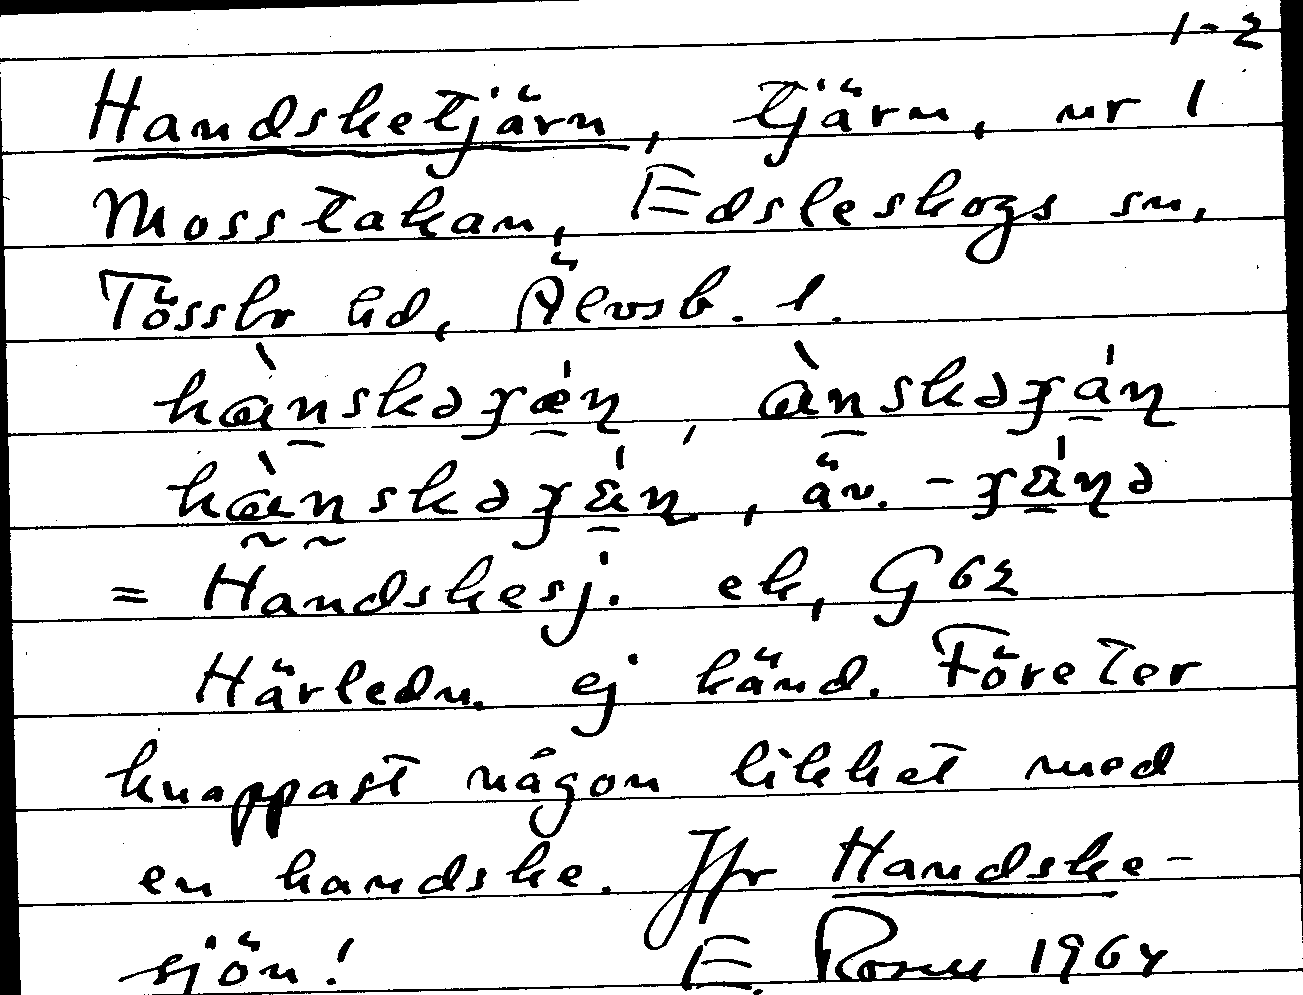 1-2
Handsketjärn, tjärn, nr 1
Mosstakan, Edsleskogs sn,
Tössbr hd, Älvsb. l.
hànskəʒǽɳ, ànskəʒáɳ
hànskəʒáɳ, äv. -ʒáɳə
= Handskesj. ek, G62
Härledn. ej känd. Företer
knappast någon likhet med
en handske. Jfr Handske-
sjön! E. 1964